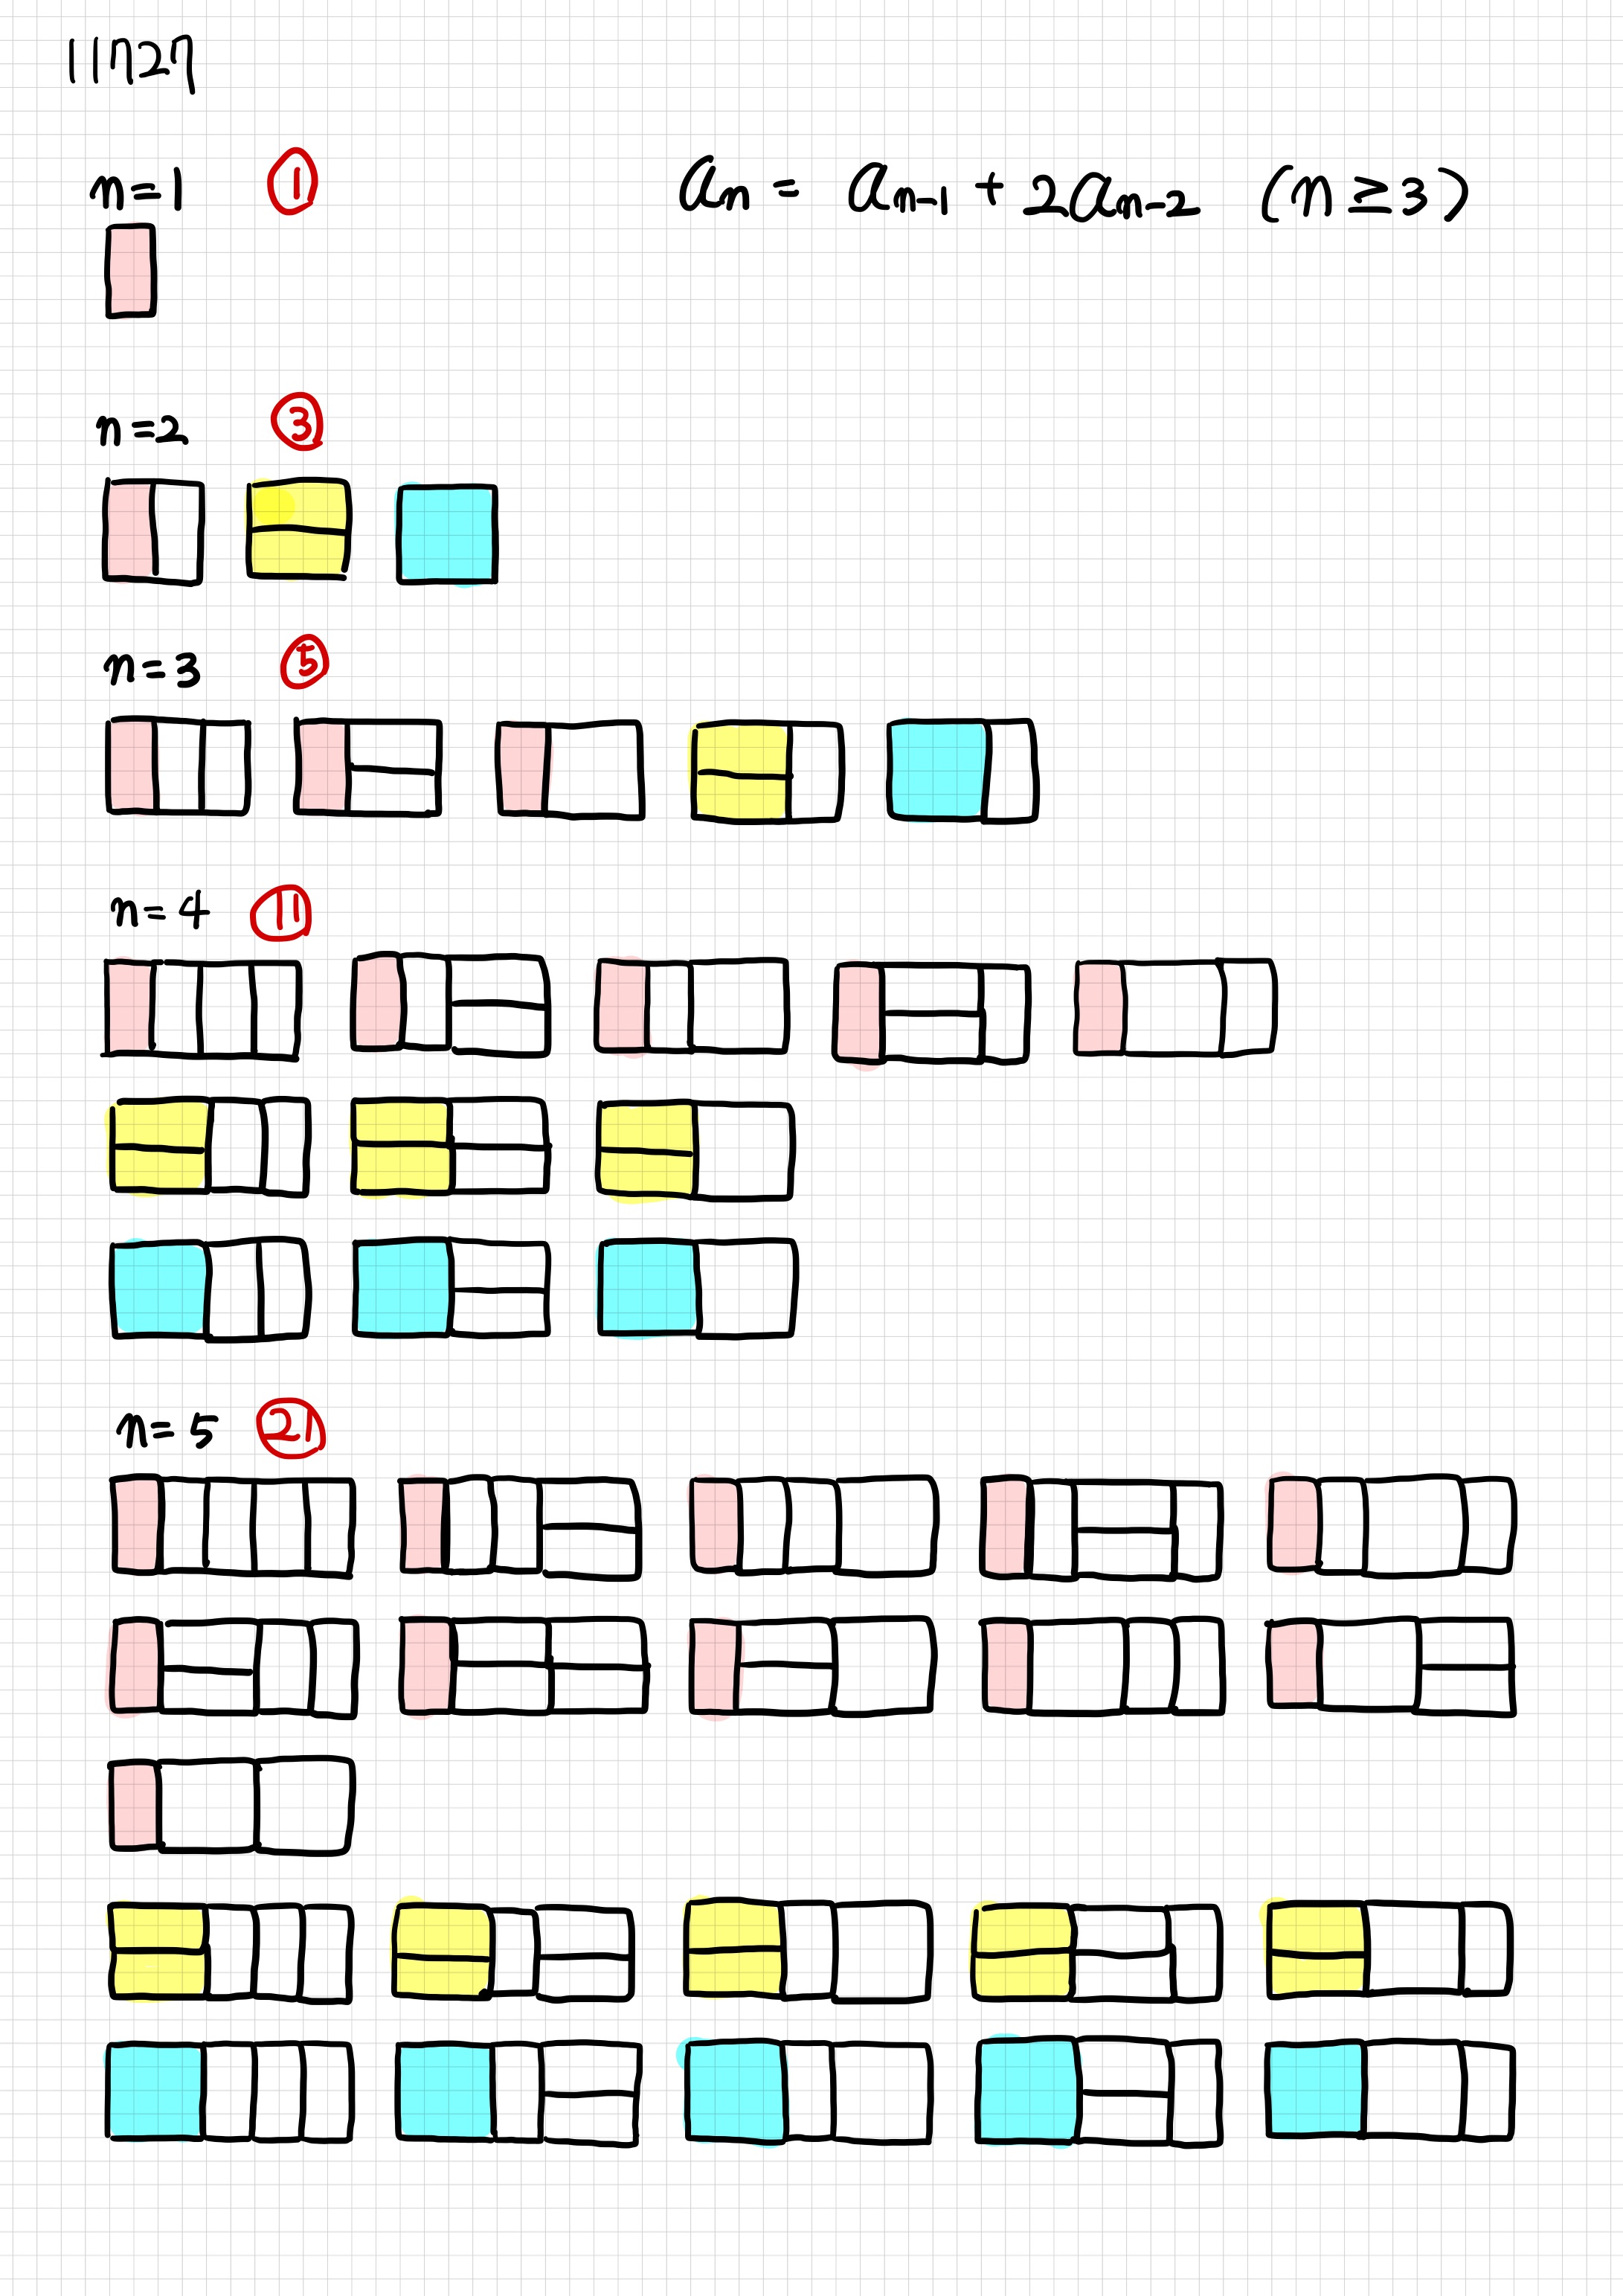 11727
n=1 ①
aₙ = aₙ₋₁ + 2aₙ₋₂ (n ≥ 3)
n=2 ③
n=3 ⑤
n=4 ⑪
n=5 ㉑